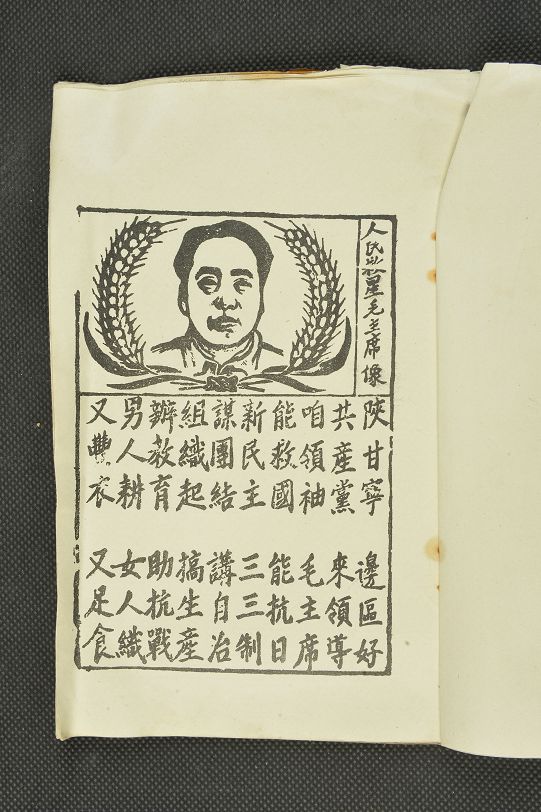 人民救星毛主席像
陝甘寧 邊區好
共產黨 來領導
咱領袖 毛主席
能救國 能抗日
新民主 三三制
謀團結 講自治
組織起 搞生產
辦教育 助抗戰
男人耕 女人織
又豐衣 又足食